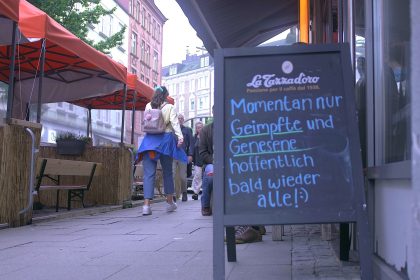 La Tazzadoro
Passione per il caffè dal 1938.
Momentan nur
Geimpfte und
Genesene
hoffentlich
bald wieder
alle!:)